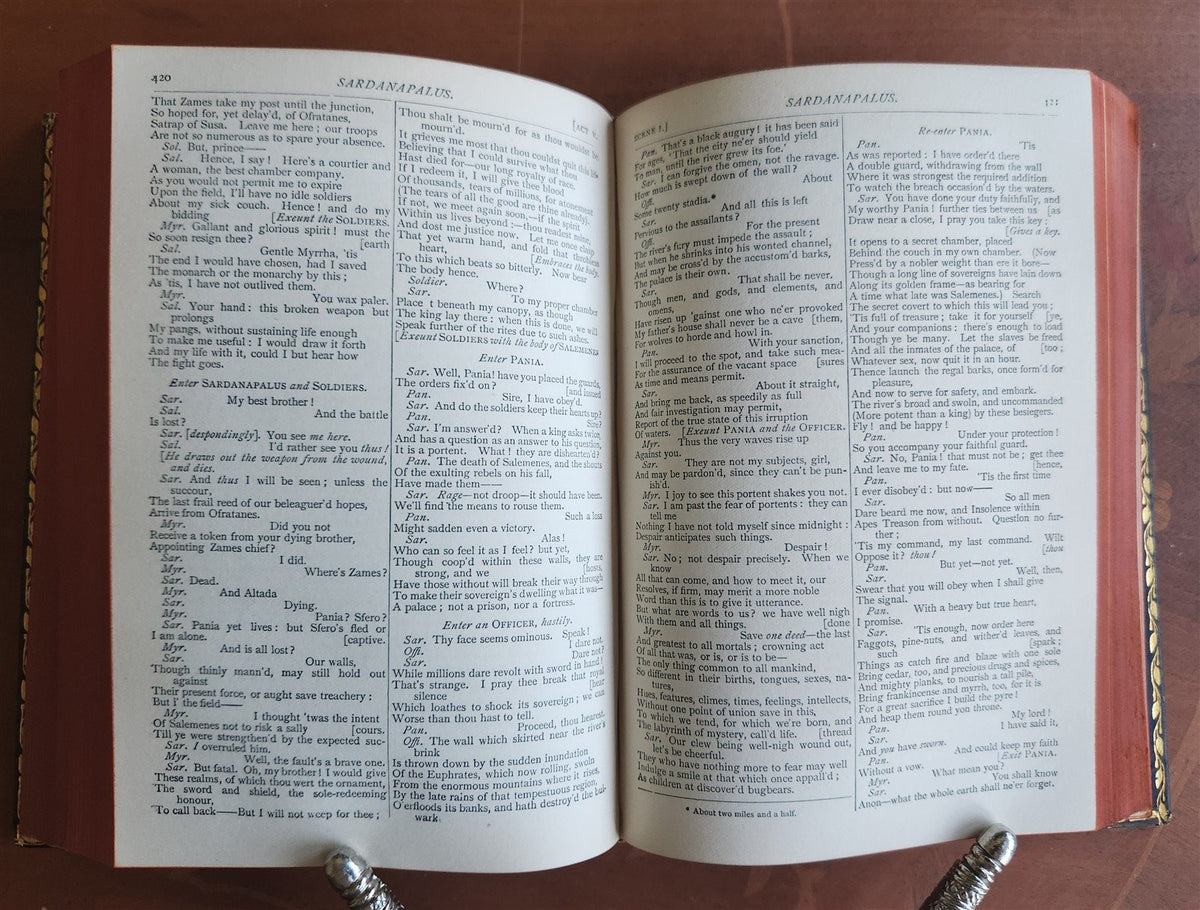 420
SARDANAPALUS.
That Zames take my post until the junction,
So hoped for, yet delay'd, of Ofratanes,
Satrap of Susa. Leave me here; our troops
Are not so numerous as to spare your absence.
Sol. But, prince——
Sal. Hence, I say! Here's a courtier and
A woman, the best chamber company.
As you would not permit me to expire
Upon the field, I'll have no idle soldiers
About my sick couch. Hence! and do my
bidding [Exeunt the SOLDIERS.
Myr. Gallant and glorious spirit! must the
So soon resign thee? [earth
Sal. Gentle Myrrha, 'tis
The end I would have chosen, had I saved
The monarch or the monarchy by this;
As 'tis, I have not outlived them.
Myr. You wax paler.
Sal. Your hand: this broken weapon but
prolongs
My pangs, without sustaining life enough
To make me useful: I would draw it forth
And my life with it, could I but hear how
The fight goes.
Enter SARDANAPALUS and SOLDIERS.
Sar. My best brother!
Sal. And the battle
Is lost?
Sar. [despondingly]. You see me here.
Sal. I'd rather see you thus!
[He draws out the weapon from the wound,
and dies.
Sar. And thus I will be seen; unless the
succour,
The last frail reed of our beleaguer'd hopes,
Arrive from Ofratanes.
Myr. Did you not
Receive a token from your dying brother,
Appointing Zames chief?
Sar. I did.
Myr. Where's Zames?
Sar. Dead.
Myr. And Altada
Sar. Dying.
Myr. Pania? Sfero?
Sar. Pania yet lives: but Sfero's fled or
I am alone. [captive.
Myr. And is all lost?
Sar. Our walls,
Though thinly mann'd, may still hold out
against
Their present force, or aught save treachery:
But i' the field——
Myr. I thought 'twas the intent
Of Salemenes not to risk a sally [cours.
Till ye were strengthen'd by the expected suc-
Sar. I overruled him.
Myr. Well, the fault's a brave one.
Sar. But fatal. Oh, my brother! I would give
These realms, of which thou wert the ornament,
The sword and shield, the sole-redeeming
honour,
To call back——But I will not weep for thee;
[ACT V.
Thou shalt be mourn'd for as thou wouldst be
mourn'd.
It grieves me most that thou couldst quit this life
Believing that I could survive what thou
Hast died for—our long royalty of race.
If I redeem it, I will give thee blood
Of thousands, tears of millions, for atonement
(The tears of all the good are thine already).
If not, we meet again soon,—if the spirit
Within us lives beyond;—thou readest mine,
And dost me justice now. Let me once clasp
That yet warm hand, and fold that throbless
heart, [Embraces the body.
To this which beats so bitterly. Now bear
The body hence.
Soldier. Where?
Sar. To my proper chamber
Place t beneath my canopy, as though
The king lay there: when this is done, we will
Speak further of the rites due to such ashes.
[Exeunt SOLDIERS with the body of SALEMENES
Enter PANIA.
Sar. Well, Pania! have you placed the guards,
The orders fix'd on? [and issued
Pan. Sire, I have obey'd.
Sar. And do the soldiers keep their hearts up?
Pan. Sire?
Sar. I'm answer'd? When a king asks twice,
And has a question as an answer to his question,
It is a portent. What! they are dishearten'd?
Pan. The death of Salemenes, and the shouts
Of the exulting rebels on his fall,
Have made them——
Sar. Rage—not droop—it should have been.
We'll find the means to rouse them.
Pan. Such a loss
Might sadden even a victory.
Sar. Alas!
Who can so feel it as I feel? but yet,
Though coop'd within these walls, they are
strong, and we [hosts,
Have those without will break their way through
To make their sovereign's dwelling what it was—
A palace; not a prison, nor a fortress.
Enter an OFFICER, hastily.
Sar. Thy face seems ominous. Speak!
Offi. I dare not.
Sar. Dare not?
While millions dare revolt with sword in hand!
That's strange. I pray thee break that royal
silence [hear
Which loathes to shock its sovereign; we can
Worse than thou hast to tell.
Pan. Proceed, thou hearest.
Offi. The wall which skirted near the river's
brink
Is thrown down by the sudden inundation
Of the Euphrates, which now rolling, swoln
From the enormous mountains where it rises,
By the late rains of that tempestuous region,
O'erfloods its banks, and hath destroy'd the bul-
wark.
SARDANAPALUS.
121
SCENE I.]
Pan. That's a black augury! it has been said
For ages, 'That the city ne'er should yield
To man, until the river grew its foe.'
Sar. I can forgive the omen, not the ravage.
How much is swept down of the wall?
Offi. About
Some twenty stadia.*
Sar. And all this is left
Pervious to the assailants?
Offi. For the present
The river's fury must impede the assault;
But when he shrinks into his wonted channel,
And may be cross'd by the accustom'd barks,
The palace is their own.
Sar. That shall be never.
Though men, and gods, and elements, and
omens,
Have risen up 'gainst one who ne'er provoked
My father's house shall never be a cave [them,
For wolves to horde and howl in.
Pan. With your sanction,
I will proceed to the spot, and take such mea-
For the assurance of the vacant space [sures
As time and means permit.
Sar. About it straight,
And bring me back, as speedily as full
And fair investigation may permit,
Report of the true state of this irruption
Of waters. [Exeunt PANIA and the OFFICER.
Myr. Thus the very waves rise up
Against you.
Sar. They are not my subjects, girl,
And may be pardon'd, since they can't be pun-
ish'd.
Myr. I joy to see this portent shakes you not.
Sar. I am past the fear of portents: they can
tell me
Nothing I have not told myself since midnight:
Despair anticipates such things.
Myr. Despair!
Sar. No; not despair precisely. When we
know
All that can come, and how to meet it, our
Resolves, if firm, may merit a more noble
Word than this is to give it utterance.
But what are words to us? we have well nigh
With them and all things. [done
Myr. Save one deed—the last
And greatest to all mortals; crowning act
Of all that was, or is, or is to be—
The only thing common to all mankind,
So different in their births, tongues, sexes, na-
tures,
Hues, features, climes, times, feelings, intellects,
Without one point of union save in this,
To which we tend, for which we're born, and
The labyrinth of mystery, call'd life. [thread
Sar. Our clew being well-nigh wound out,
let's be cheerful.
They who have nothing more to fear may well
Indulge a smile at that which once appall'd;
As children at discover'd bugbears.
* About two miles and a half.
Re-enter PANIA.
Pan. 'Tis
As was reported: I have order'd there
A double guard, withdrawing from the wall
Where it was strongest the required addition
To watch the breach occasion'd by the waters.
Sar. You have done your duty faithfully, and
My worthy Pania! further ties between us [as
Draw near a close, I pray you take this key:
[Gives a key.
It opens to a secret chamber, placed
Behind the couch in my own chamber. (Now
Press'd by a nobler weight than ere it bore—
Though a long line of sovereigns have lain down
Along its golden frame—as bearing for
A time what late was Salemenes.) Search
The secret covert to which this will lead you;
'Tis full of treasure; take it for yourself [ye,
And your companions: there's enough to load
Though ye be many. Let the slaves be freed
And all the inmates of the palace, of [too;
Whatever sex, now quit it in an hour.
Thence launch the regal barks, once form'd for
pleasure,
And now to serve for safety, and embark.
The river's broad and swoln, and uncommanded
(More potent than a king) by these besiegers.
Fly! and be happy!
Pan. Under your protection!
So you accompany your faithful guard.
Sar. No, Pania! that must not be; get thee
And leave me to my fate. [hence,
Pan. 'Tis the first time
I ever disobey'd: but now——
Sar. So all men
Dare beard me now, and Insolence within
Apes Treason from without. Question no fur-
ther;
'Tis my command, my last command. Wilt
Oppose it? thou! [thou
Pan. But yet—not yet.
Sar. Well, then,
Swear that you will obey when I shall give
The signal.
Pan. With a heavy but true heart,
I promise.
Sar. 'Tis enough, now order here
Faggots, pine-nuts, and wither'd leaves, and
such [spark;
Things as catch fire and blaze with one sole
Bring cedar, too, and precious drugs and spices,
And mighty planks, to nourish a tall pile,
Bring frankincense and myrrh, too, for it is
For a great sacrifice I build the pyre!
And heap them round yon throne.
Pan. My lord!
Sar. I have said it,
And you have sworn.
Pan. And could keep my faith
Without a vow. [Exit PANIA.
Myr. What mean you?
Sar. You shall know
Anon—what the whole earth shall ne'er forget.